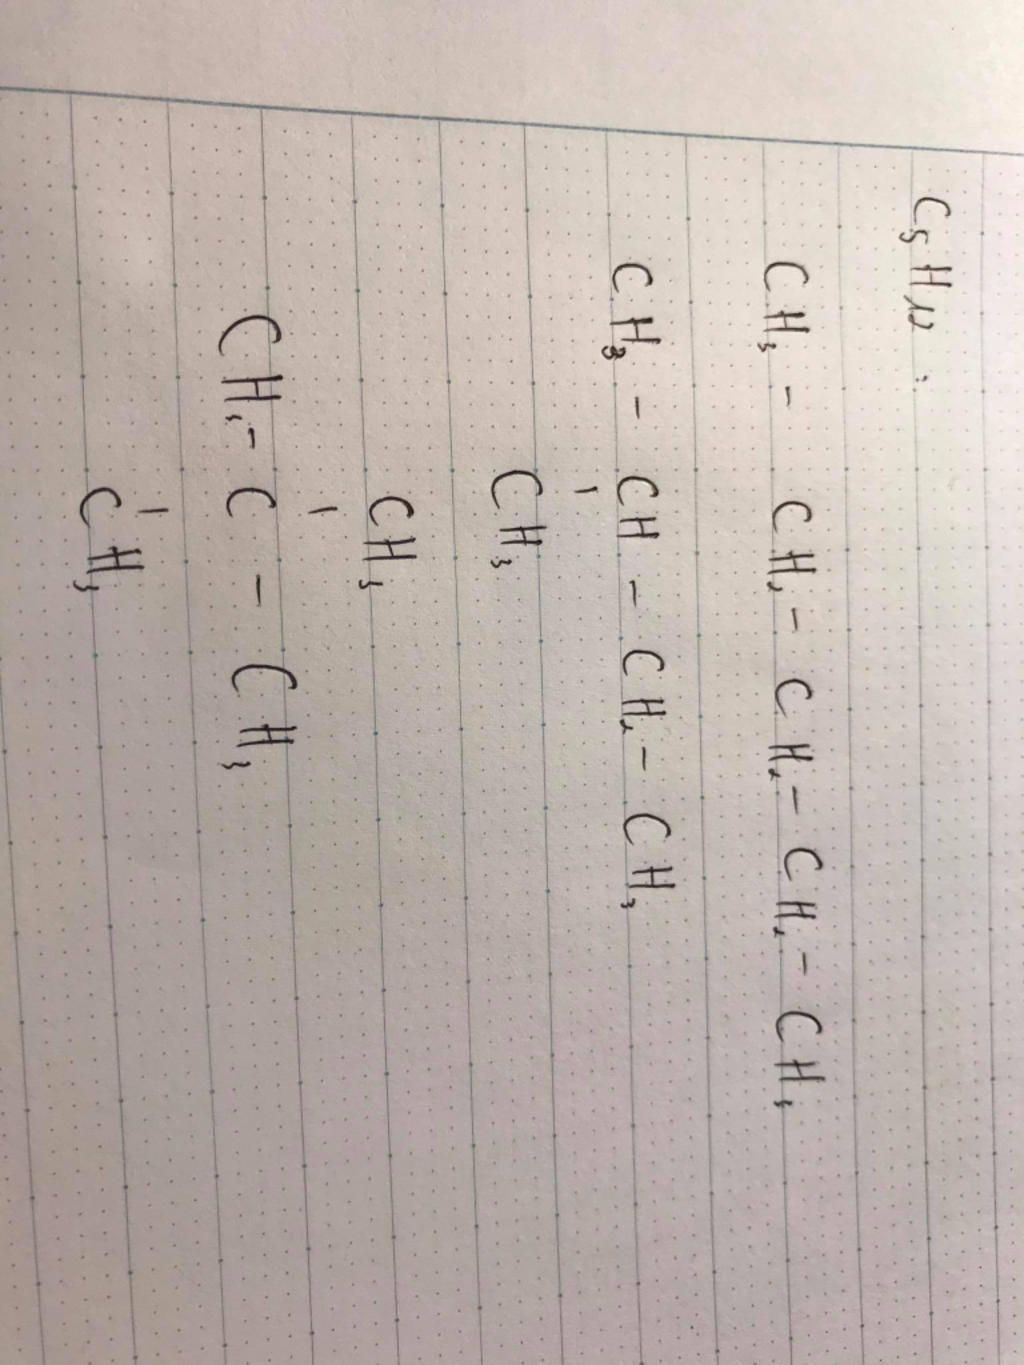 C₅H₁₂ :
CH₃ - CH₂ - CH₂ - CH₂ - CH₃
CH₃ - CH - CH₂ - CH₃
CH₃
CH₃
CH₃ - C - CH₃
CH₃